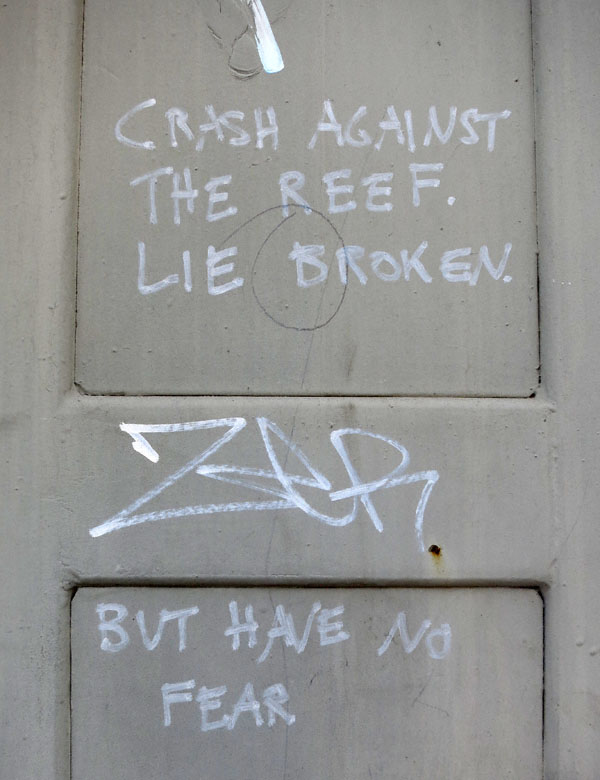 CRASH AGAINST
THE REEF.
LIE BROKEN.
ZER
BUT HAVE NO
FEAR